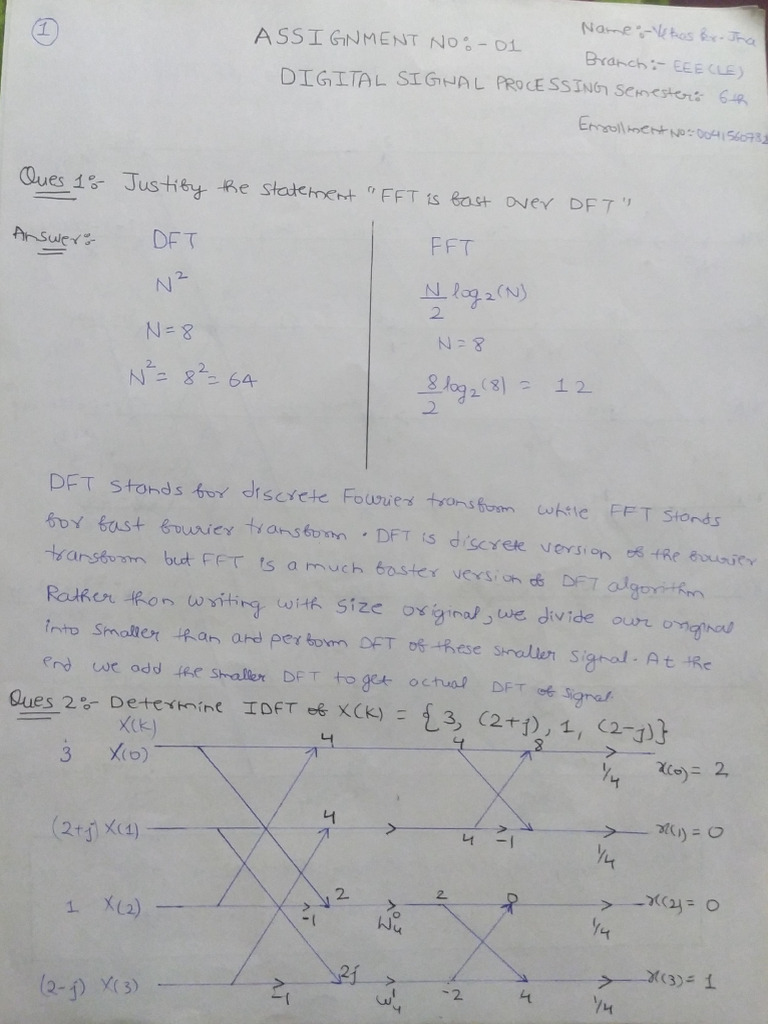 1
ASSIGNMENT NO:- 01
DIGITAL SIGNAL PROCESSING
Name:-
Branch:- EEE(LE)
Semester:- 6th
Enrollment No:-
Ques 1:- Justify the statement "FFT is fast over DFT"
Answer:-
DFT
N²
N=8
N² = 8² = 64
FFT
N/2 log₂(N)
N=8
8/2 log₂(8) = 12
DFT stands for discrete Fourier transform while FFT stands
for fast fourier transform. DFT is discrete version of the fourier
transform but FFT is a much faster version of DFT algorithm
Rather than writing with size original, we divide our original
into smaller than and perform DFT of these smaller signal. At the
end we add the smaller DFT to get actual DFT of signal
Ques 2:- Determine IDFT of X(K) = {3, (2+j), 1, (2-j)}
X(K)
3 X(0) 4 4 8 1/4 x(0) = 2
(2+j) X(1) 4 4 -1 1/4 x(1) = 0
1 X(2) -1 2 W₄⁰ 2 0 1/4 x(2) = 0
(2-j) X(3) -1 2j W₄¹ -2 4 1/4 x(3) = 1